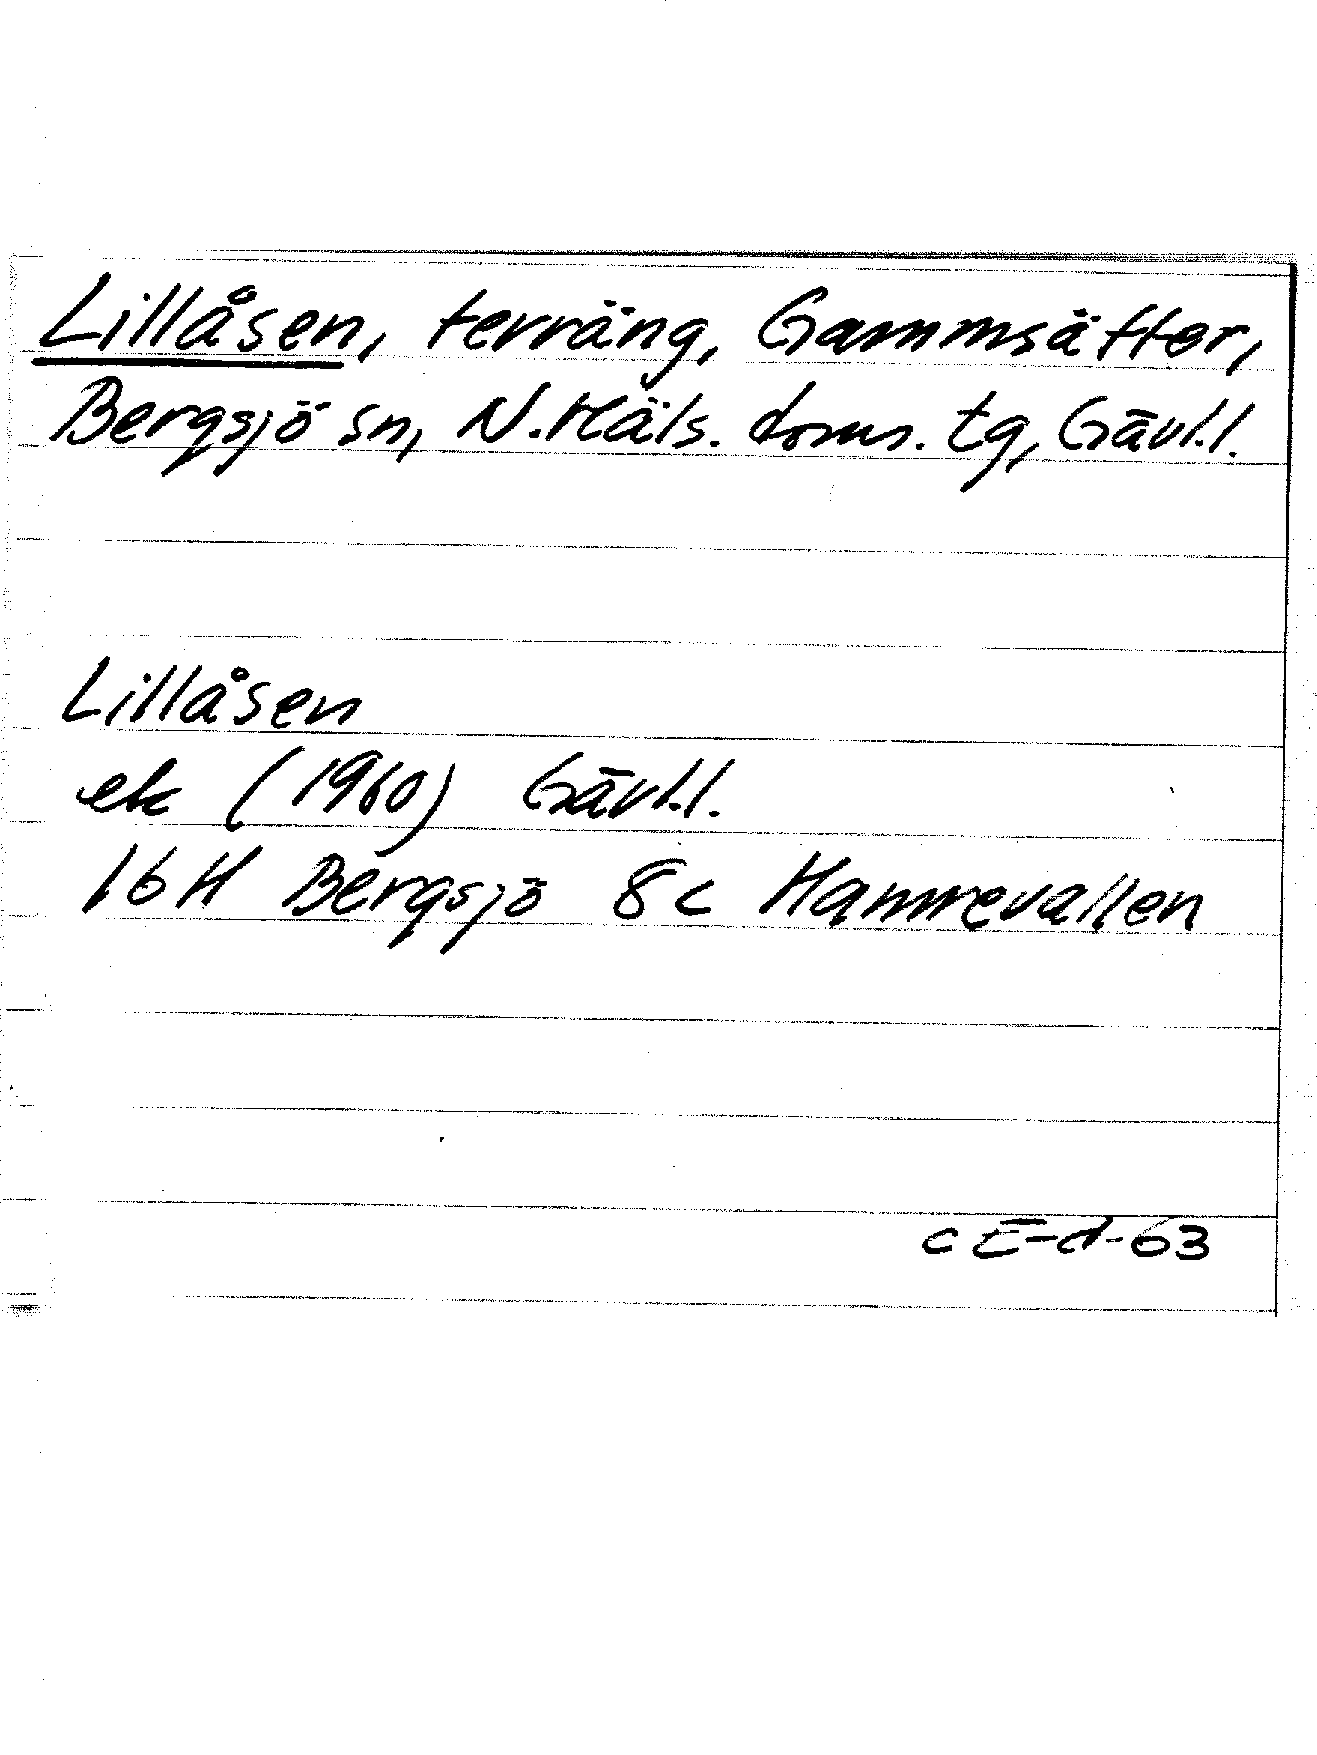 Lillåsen, terräng, Gammsätter,
Bergsjö sn, N.Häls. doms. tg, Gävl.l.
Lillåsen
ek (1960) Gävl.l.
16 H Bergsjö 8c Hamrevallen
CE-d-63